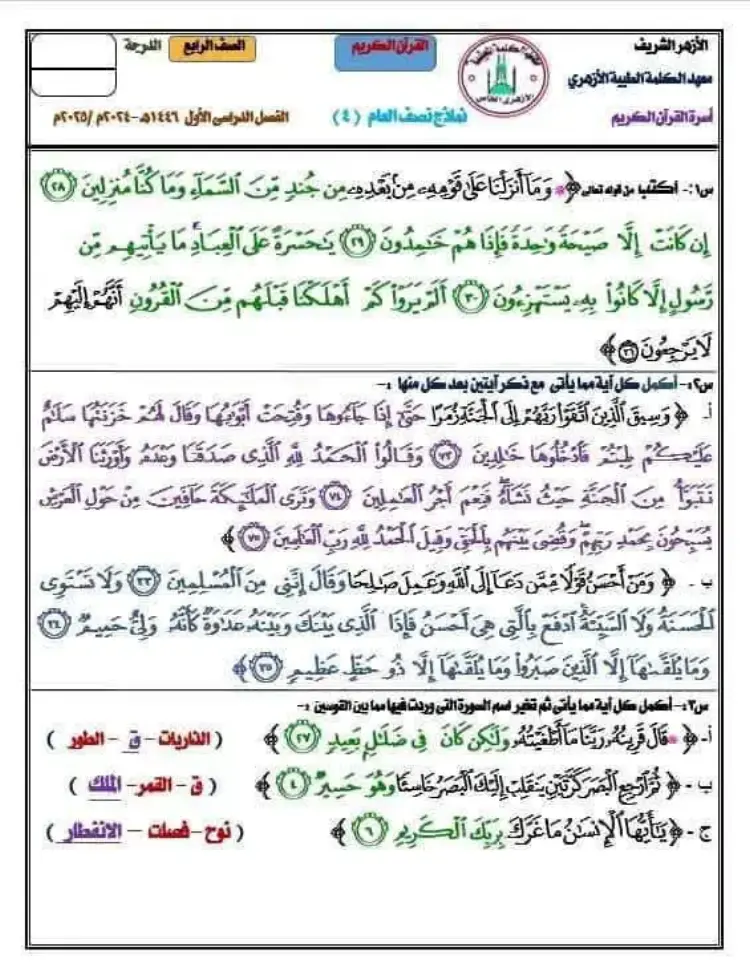 الأزهر الشريف
القرآن الكريم
الصف الرابع
الدرجة
معهد الكلمة الطيبة الأزهري
أسرة القرآن الكريم
نماذج نصف العام (٤)
الفصل الدراسى الأول ١٤٤٦هـ -٢٠٢٤م /٢٠٢٥م
س١:- أكتب من قوله تعالى ﴿* وَمَا أَنزَلْنَا عَلَىٰ قَوْمِهِۦ مِنۢ بَعْدِهِۦ مِن جُندٍ مِّنَ السَّمَآءِ وَمَا كُنَّا مُنزِلِينَ ٢٨
إِن كَانَتْ إِلَّا صَيْحَةً وَٰحِدَةً فَإِذَا هُمْ خَٰمِدُونَ ٢٩ يَٰحَسْرَةً عَلَى الْعِبَادِ مَا يَأْتِيهِم مِّن
رَّسُولٍ إِلَّا كَانُوا۟ بِهِۦ يَسْتَهْزِءُونَ ٣٠ أَلَمْ يَرَوْا۟ كَمْ أَهْلَكْنَا قَبْلَهُم مِّنَ الْقُرُونِ أَنَّهُمْ إِلَيْهِمْ
لَا يَرْجِعُونَ ٣١﴾
س٢:- أكمل كل آية مما يأتى مع ذكر آيتين بعد كل منها :-
أ- ﴿ وَسِيقَ الَّذِينَ اتَّقَوْا۟ رَبَّهُمْ إِلَى الْجَنَّةِ زُمَرًا حَتَّىٰٓ إِذَا جَآءُوهَا وَفُتِحَتْ أَبْوَٰبُهَا وَقَالَ لَهُمْ خَزَنَتُهَا سَلَٰمٌ
عَلَيْكُمْ طِبْتُمْ فَادْخُلُوهَا خَٰلِدِينَ ٧٣ وَقَالُوا۟ الْحَمْدُ لِلَّهِ الَّذِى صَدَقَنَا وَعْدَهُۥ وَأَوْرَثَنَا الْأَرْضَ
نَتَبَوَّأُ مِنَ الْجَنَّةِ حَيْثُ نَشَآءُ فَنِعْمَ أَجْرُ الْعَٰمِلِينَ ٧٤ وَتَرَى الْمَلَٰٓئِكَةَ حَآفِّينَ مِنْ حَوْلِ الْعَرْشِ
يُسَبِّحُونَ بِحَمْدِ رَبِّهِمْ وَقُضِىَ بَيْنَهُم بِالْحَقِّ وَقِيلَ الْحَمْدُ لِلَّهِ رَبِّ الْعَٰلَمِينَ ٧٥ ﴾
ب- ﴿ وَمَنْ أَحْسَنُ قَوْلًا مِّمَّن دَعَآ إِلَى اللَّهِ وَعَمِلَ صَٰلِحًا وَقَالَ إِنَّنِى مِنَ الْمُسْلِمِينَ ٣٣ وَلَا تَسْتَوِى
الْحَسَنَةُ وَلَا السَّيِّئَةُ ادْفَعْ بِالَّتِى هِىَ أَحْسَنُ فَإِذَا الَّذِى بَيْنَكَ وَبَيْنَهُۥ عَدَٰوَةٌ كَأَنَّهُۥ وَلِىٌّ حَمِيمٌ ٣٤
وَمَا يُلَقَّىٰهَآ إِلَّا الَّذِينَ صَبَرُوا۟ وَمَا يُلَقَّىٰهَآ إِلَّا ذُو حَظٍّ عَظِيمٍ ٣٥ ﴾
س٣:- أكمل كل آية مما يأتى ثم تخير اسم السورة التى وردت فيها مما بين القوسين :-
أ- ﴿* قَالَ قَرِينُهُۥ رَبَّنَا مَآ أَطْغَيْتُهُۥ وَلَٰكِن كَانَ فِى ضَلَٰلٍۭ بَعِيدٍ ٢٧ ﴾ ( الذاريات - ق - الطور )
ب- ﴿ ثُمَّ ارْجِعِ الْبَصَرَ كَرَّتَيْنِ يَنقَلِبْ إِلَيْكَ الْبَصَرُ خَاسِئًا وَهُوَ حَسِيرٌ ٤ ﴾ ( ق - القمر- الملك )
ج- ﴿ يَٰٓأَيُّهَا الْإِنسَٰنُ مَا غَرَّكَ بِرَبِّكَ الْكَرِيمِ ٦ ﴾ ( نوح - فصلت - الانفطار )